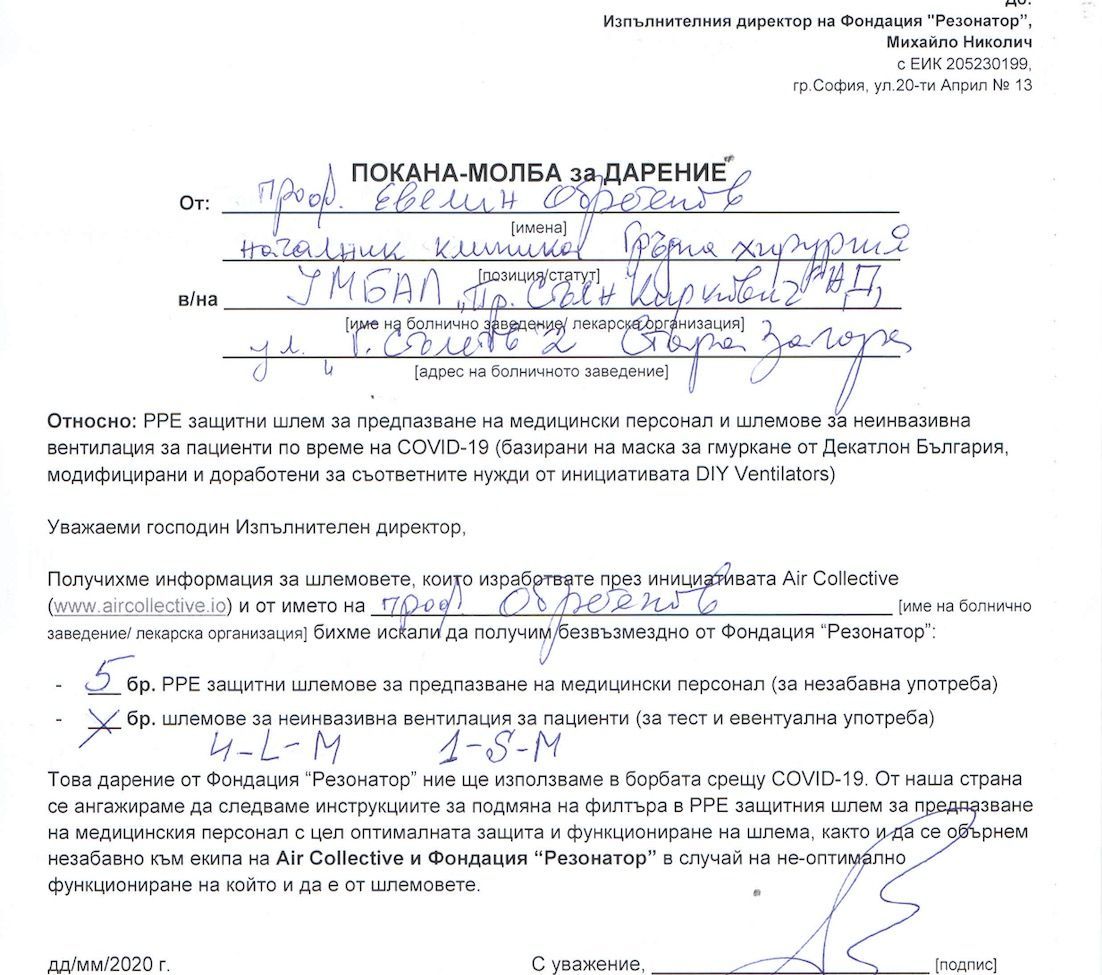 До:
Изпълнителния директор на Фондация "Резонатор”,
Михайло Николич
с ЕИК 205230199,
гр.София, ул.20-ти Април № 13
ПОКАНА-МОЛБА за ДАРЕНИЕ
От: проф. Евелин Обретенов
[имена]
началник клиника Гръдна хирургия
[позиция/статут]
в/на УМБАЛ „Пр. Стоян Киркович" АД
[име на болнично заведение/ лекарска организация]
ул. 2 Стара Загора
[адрес на болничното заведение]
Относно: PPE защитни шлем за предпазване на медицински персонал и шлемове за неинвазивна
вентилация за пациенти по време на COVID-19 (базирани на маска за гмуркане от Декатлон България,
модифицирани и доработени за съответните нужди от инициативата DIY Ventilators)
Уважаеми господин Изпълнителен директор,
Получихме информация за шлемовете, които изработвате през инициативата Air Collective
(www.aircollective.io) и от името на проф. Обретенов [име на болнично
заведение/ лекарска организация] бихме искали да получим безвъзмездно от Фондация “Резонатор”:
- 5 бр. PPE защитни шлемове за предпазване на медицински персонал (за незабавна употреба)
- X бр. шлемове за неинвазивна вентилация за пациенти (за тест и евентуална употреба)
4-L-M 1-S-M
Това дарение от Фондация “Резонатор” ние ще използваме в борбата срещу COVID-19. От наша страна
се ангажираме да следваме инструкциите за подмяна на филтъра в PPE защитния шлем за предпазване
на медицинския персонал с цел оптималната защита и функциониране на шлема, както и да се обърнем
незабавно към екипа на Air Collective и Фондация “Резонатор” в случай на не-оптимално
функциониране на който и да е от шлемовете.
дд/мм/2020 г. С уважение, [подпис]